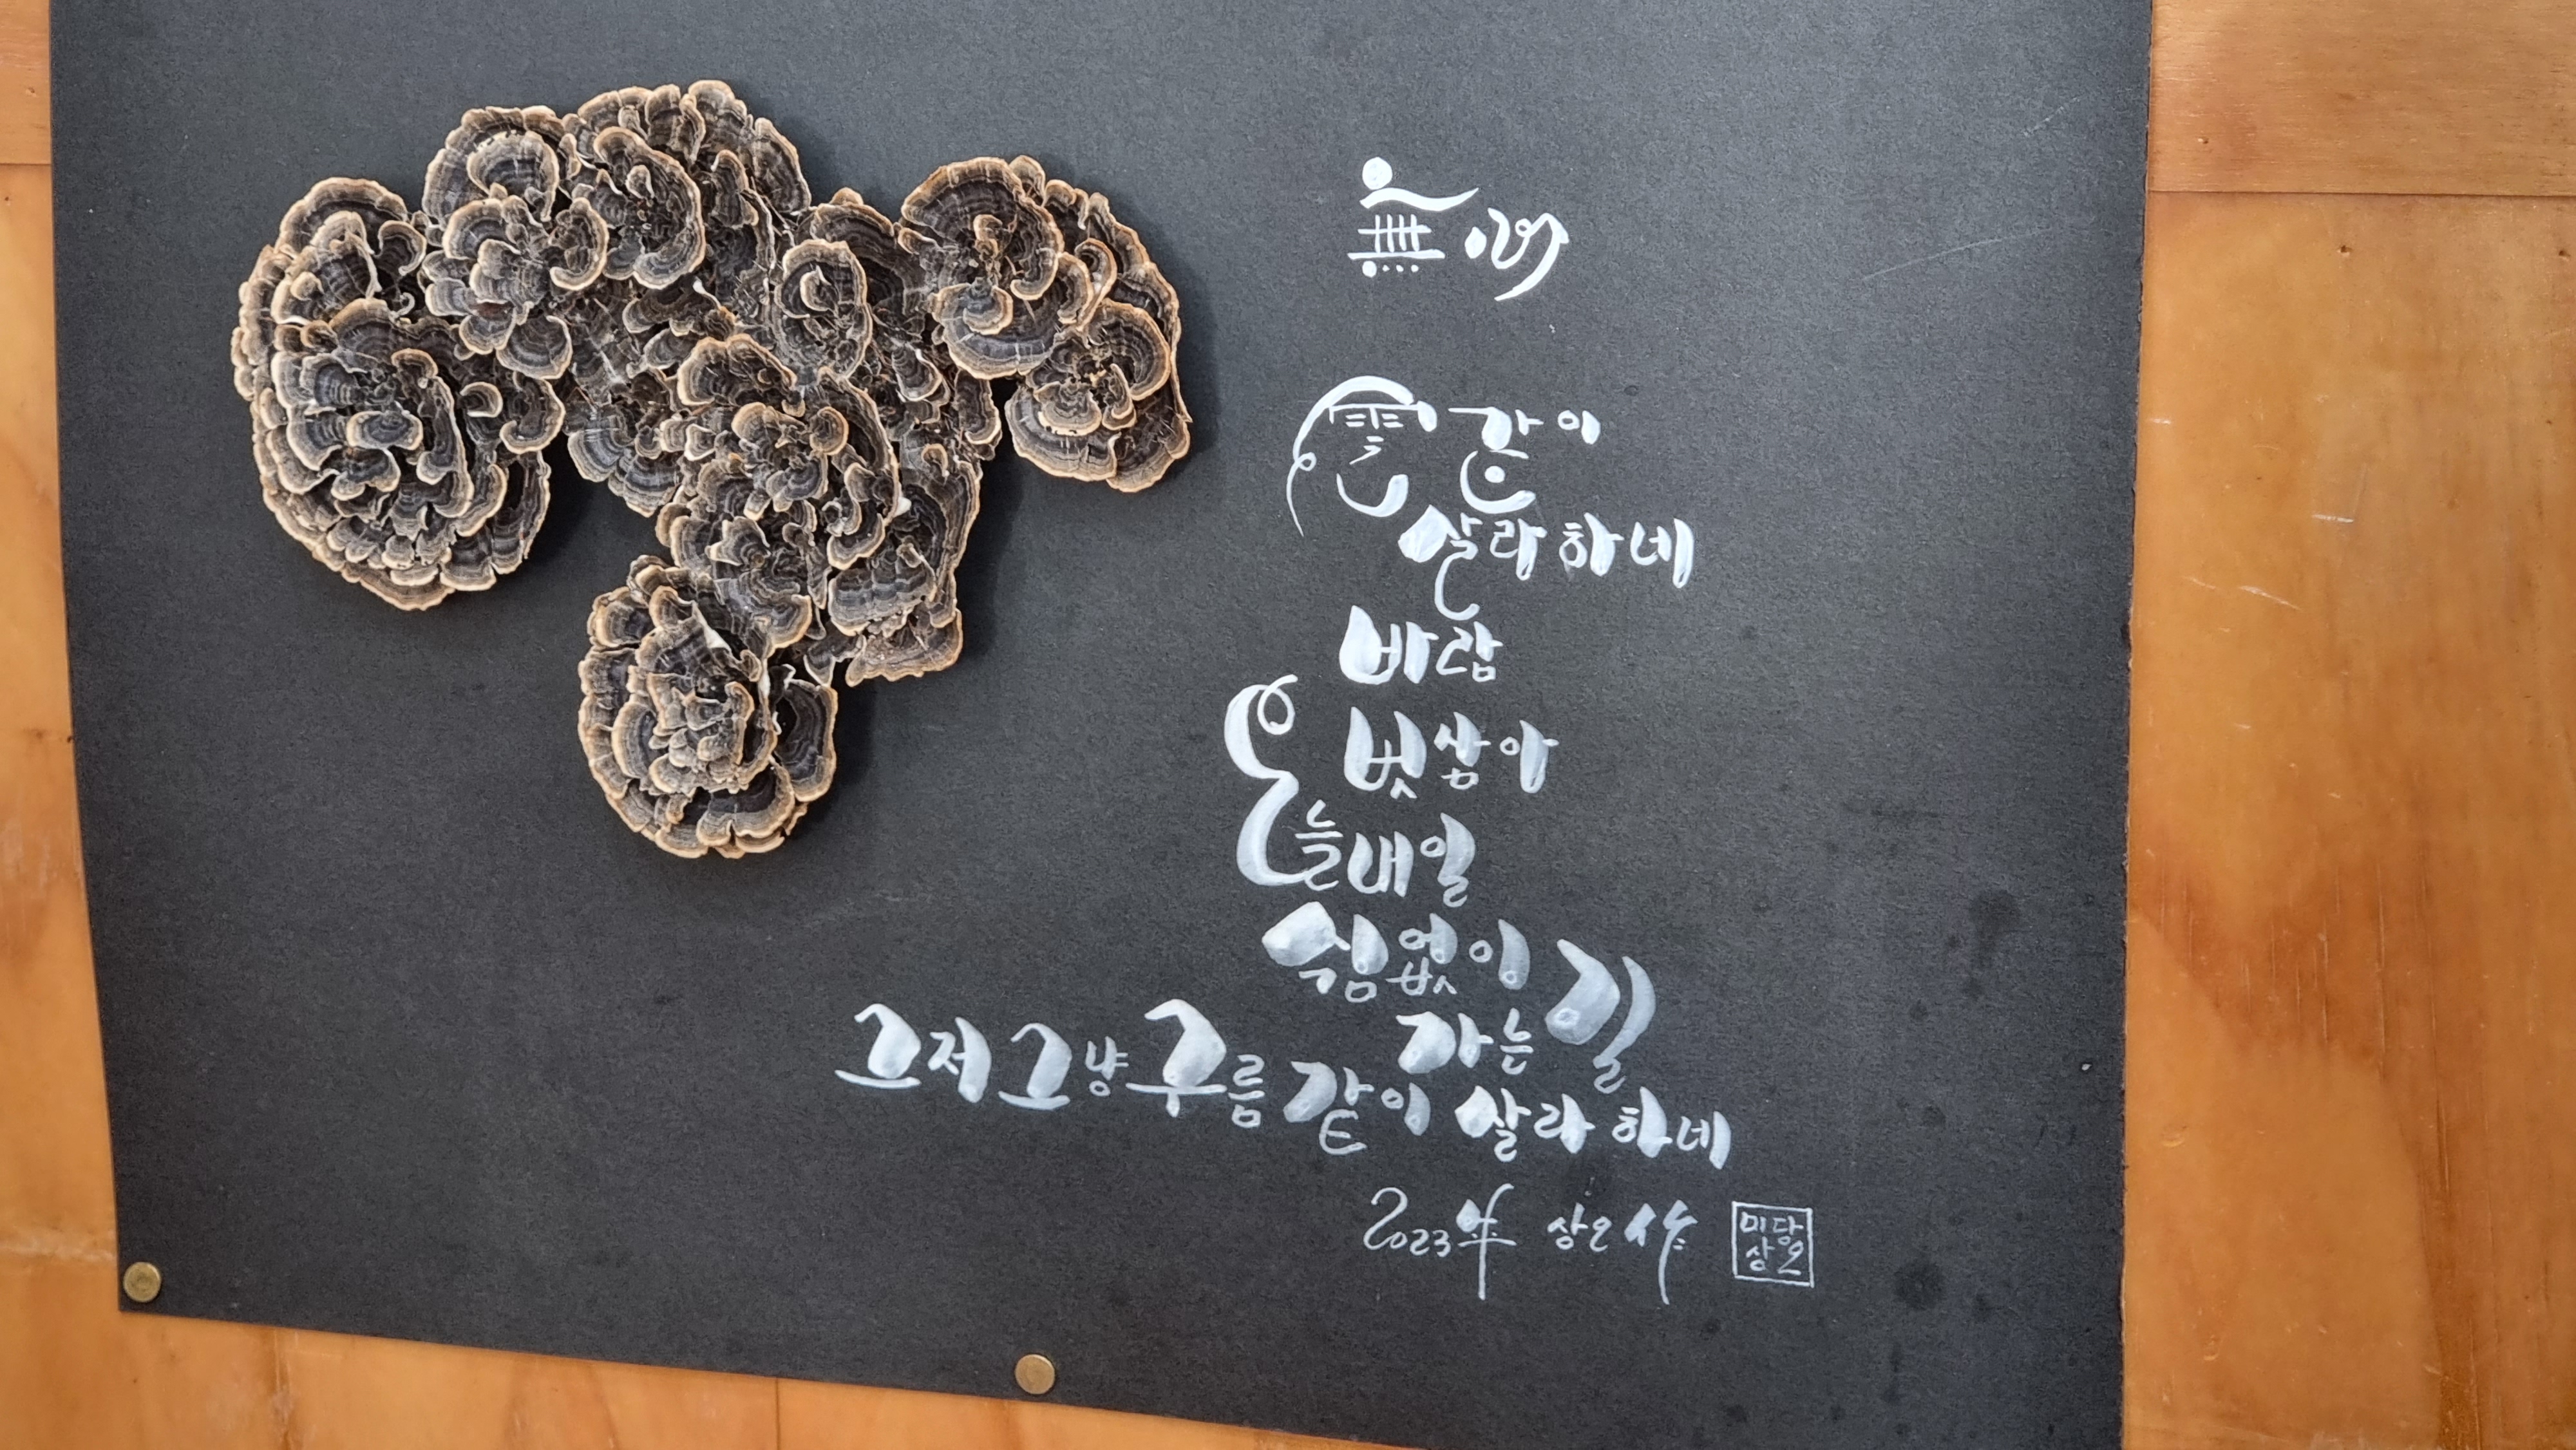 無心
雲 같이
살라하네
바람
벗삼아
오늘내일
쉼없이
가는 길
그저 그냥 구름 같이 살라 하네
2023年 상오 作
미당
상오